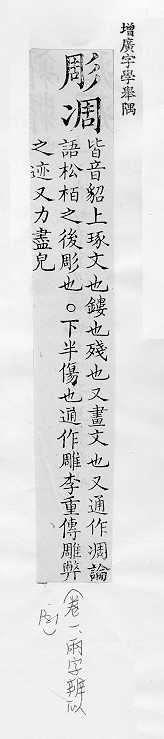 增廣字學舉隅
彫凋
皆音貂上琢文也鏤也殘也又畫文也又通作凋論
語松栢之後彫也○下半傷也通作雕李重傳雕獘
之迹又力盡皃
(卷一、兩字辨似